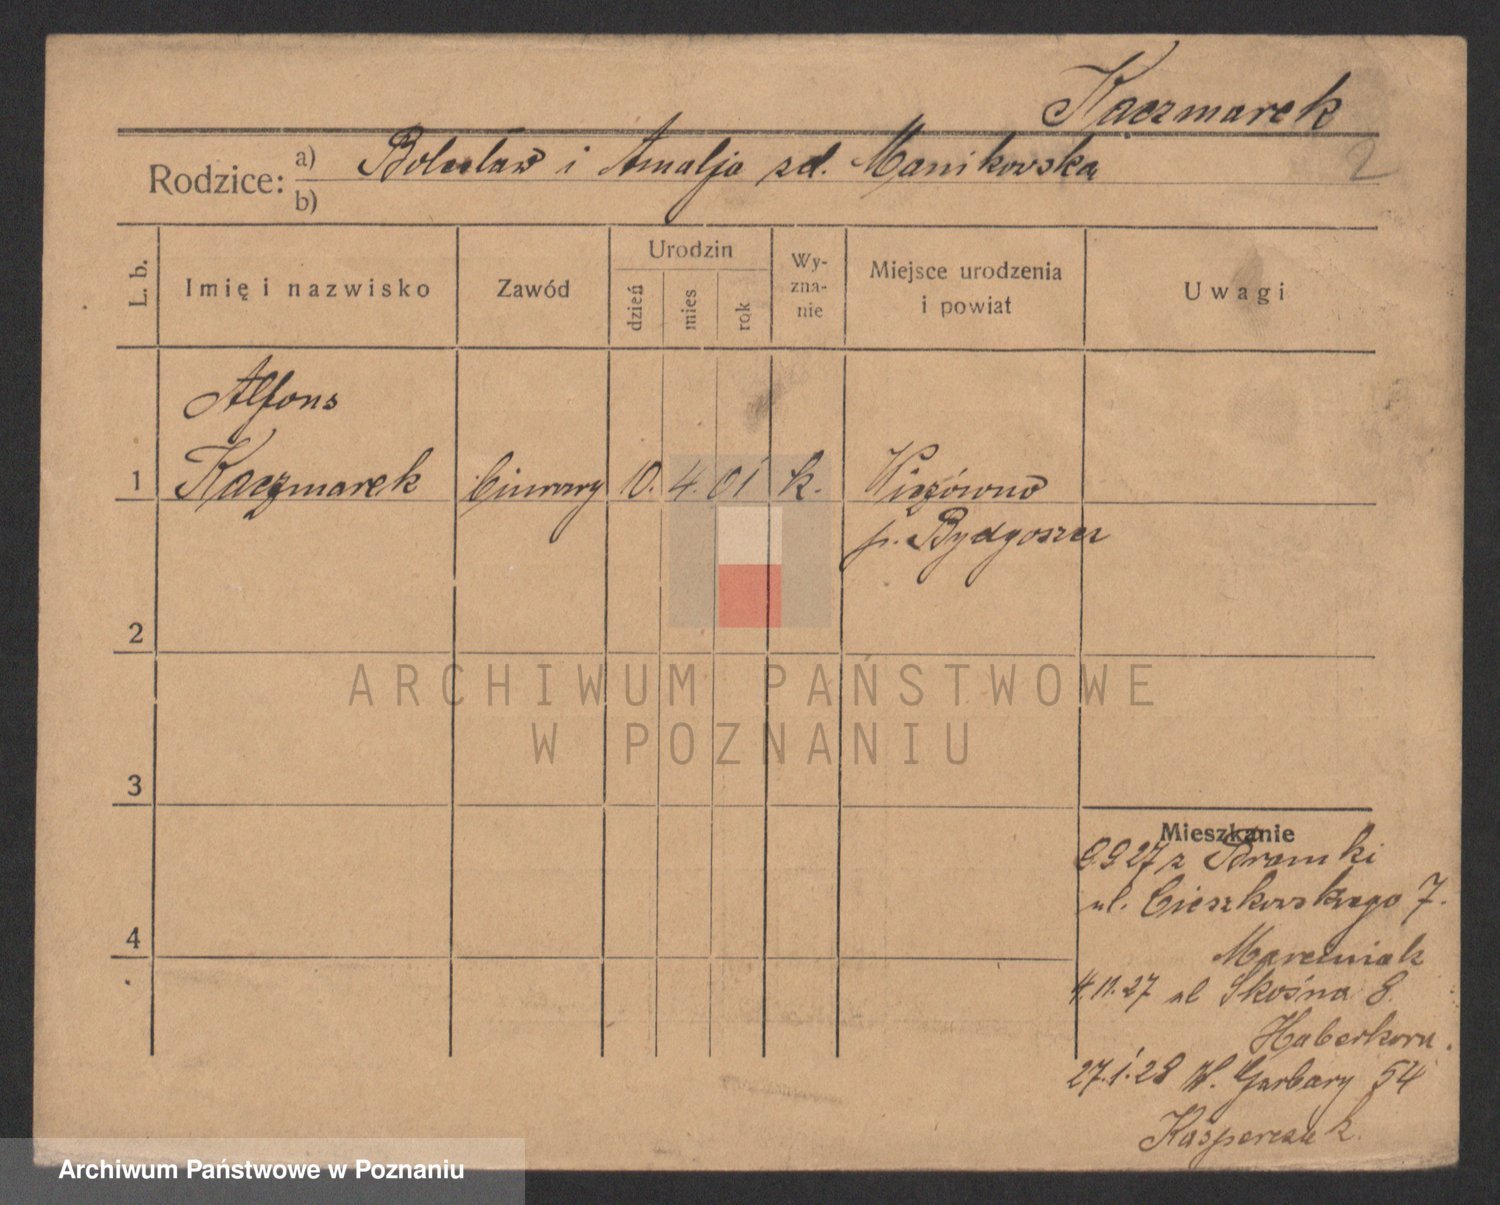 Kaczmarek
2
Rodzice: a) Bolesław i Amalja zd. Manikowska
b)
L. b. Imię i nazwisko Zawód Urodzin dzień mies rok Wy-zna-nie Miejsce urodzenia i powiat Uwagi
Alfons
1 Kaczmarek biurowy 10. 4. 01 k.
p. Bydgoszcz
2
ARCHIWUM PAŃSTWOWE
W POZNANIU
3
Mieszkanie
27 z
ul. Cieszkowskiego 7.
4
Marciniak
4.11.27 ul Skośna 8.
Haberkorn.
27.1.28 W. Garbary 54
Kasperczak.
Archiwum Państwowe w Poznaniu